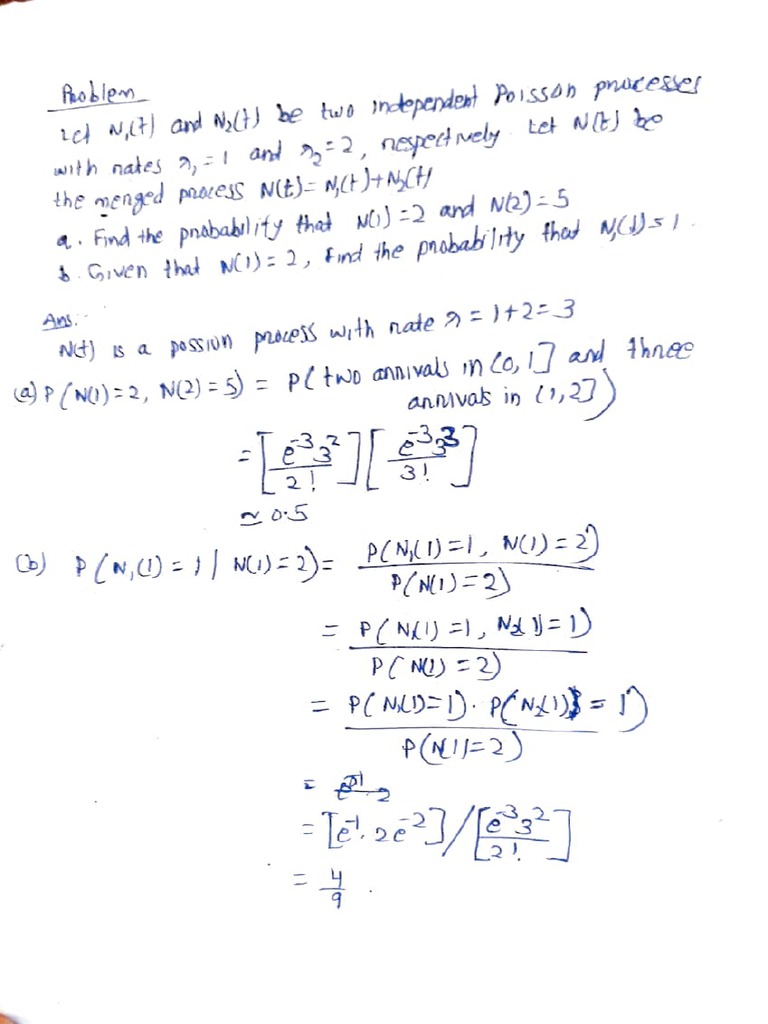 Problem
Let N₁(t) and N₂(t) be two independent Poisson processes
with rates λ₁ = 1 and λ₂ = 2, respectively. Let N(t) be
the merged process N(t) = N₁(t) + N₂(t)
a. Find the probability that N(1) = 2 and N(2) = 5
b. Given that N(1) = 2, find the probability that N₁(1) = 1.
Ans:-
N(t) is a possion process with rate λ = 1+2 = 3
(a) P(N(1) = 2, N(2) = 5) = P(two arrivals in (0,1] and three
arrivals in (1,2])
= [e⁻³3²/2!] [e⁻³3³/3!]
≈ 0.5
(b) P(N₁(1) = 1 | N(1) = 2) = P(N₁(1) = 1, N(1) = 2) / P(N(1) = 2)
= P(N₁(1) = 1, N₂(1) = 1) / P(N(1) = 2)
= P(N₁(1) = 1) . P(N₂(1) = 1) / P(N(1) = 2)
=
= [e⁻¹. 2e⁻²] / [e⁻³3²/2!]
= 4/9 .